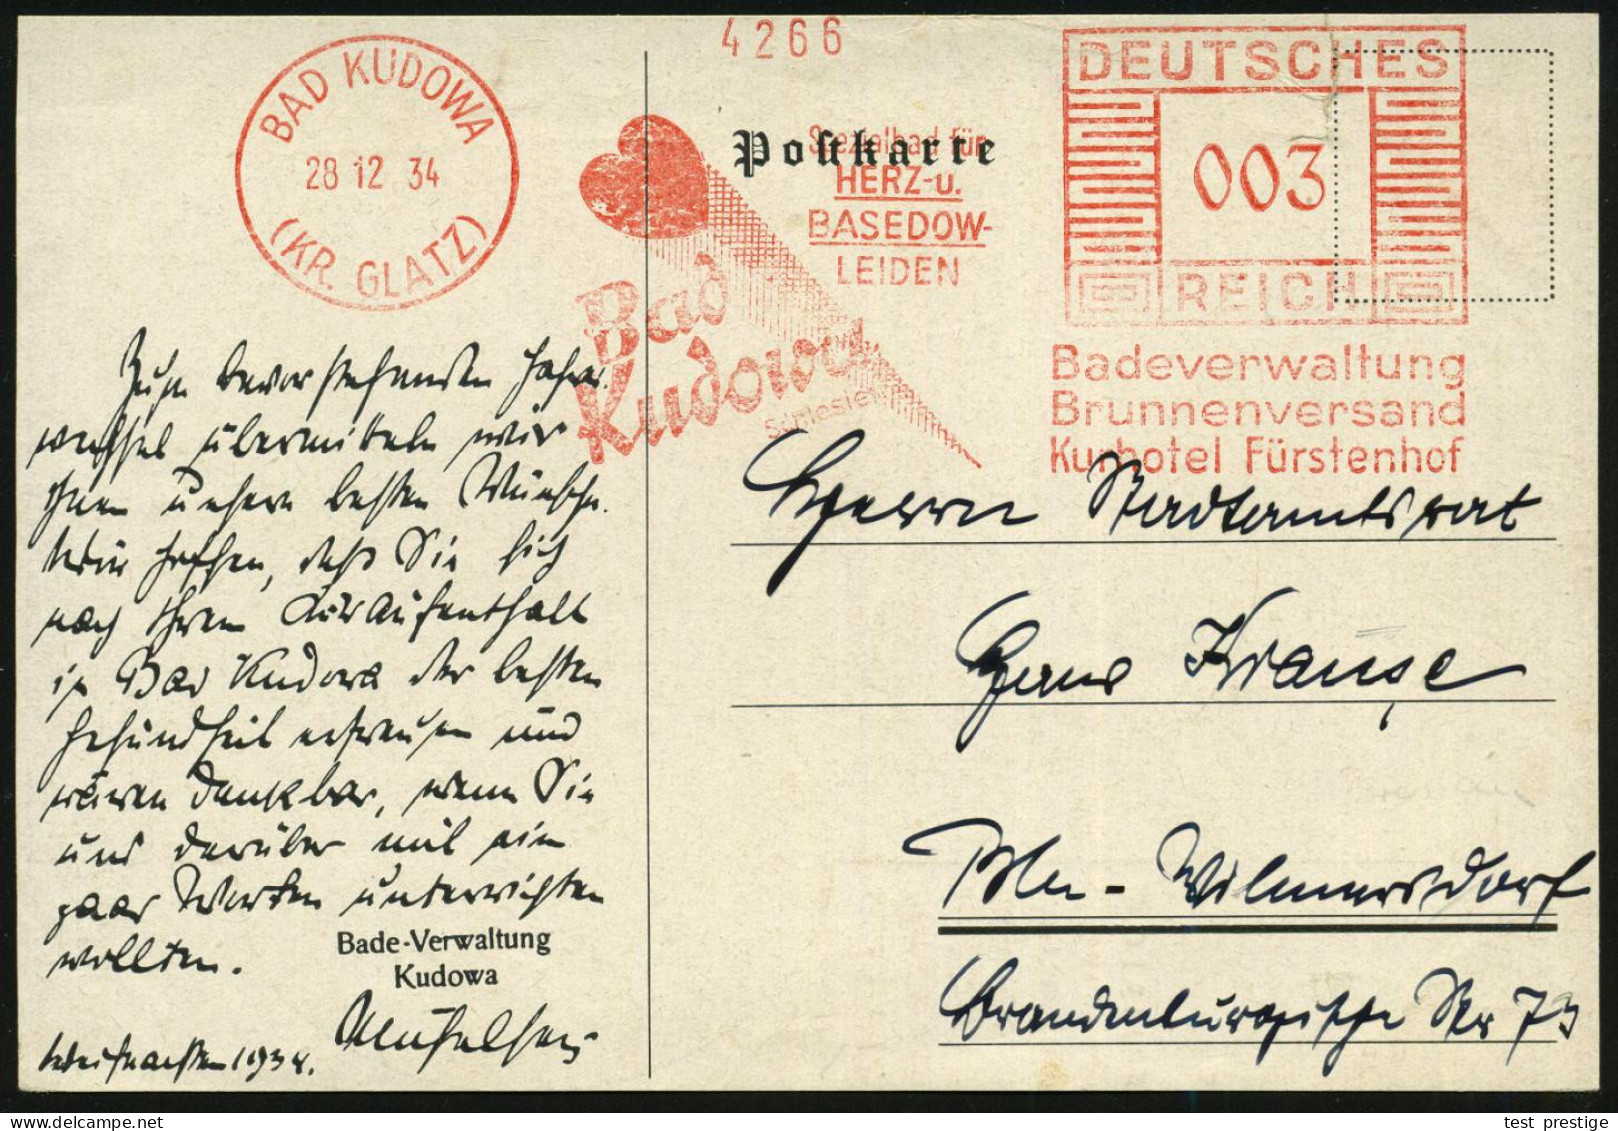 BAD KUDOWA
28 12 34
(KR. GLATZ)
4266
Postkarte
Spezialbad für
HERZ-u.
BASEDOW-
LEIDEN
Bad
Kudowa
Schlesien
DEUTSCHES
003
REICH
Badeverwaltung
Brunnenversand
Kurhotel Fürstenhof
Zum bevorstehenden Jahres-
wechsel übermitteln wir
Ihnen unsere besten Wünsche.
Wir hoffen, daß Sie sich
nach Ihrem Kuraufenthalt
in Bad Kudowa der besten
Gesundheit erfreuen und
wären dankbar, wenn Sie
uns darüber mit ein
paar Worten unterrichten
wollten.
Bade-Verwaltung
Kudowa
Weihnachten 1934.
Herrn Stadtamtsrat
Hans Krause
Bln-Wilmersdorf
Brandenburgische Str 73
test_prestige